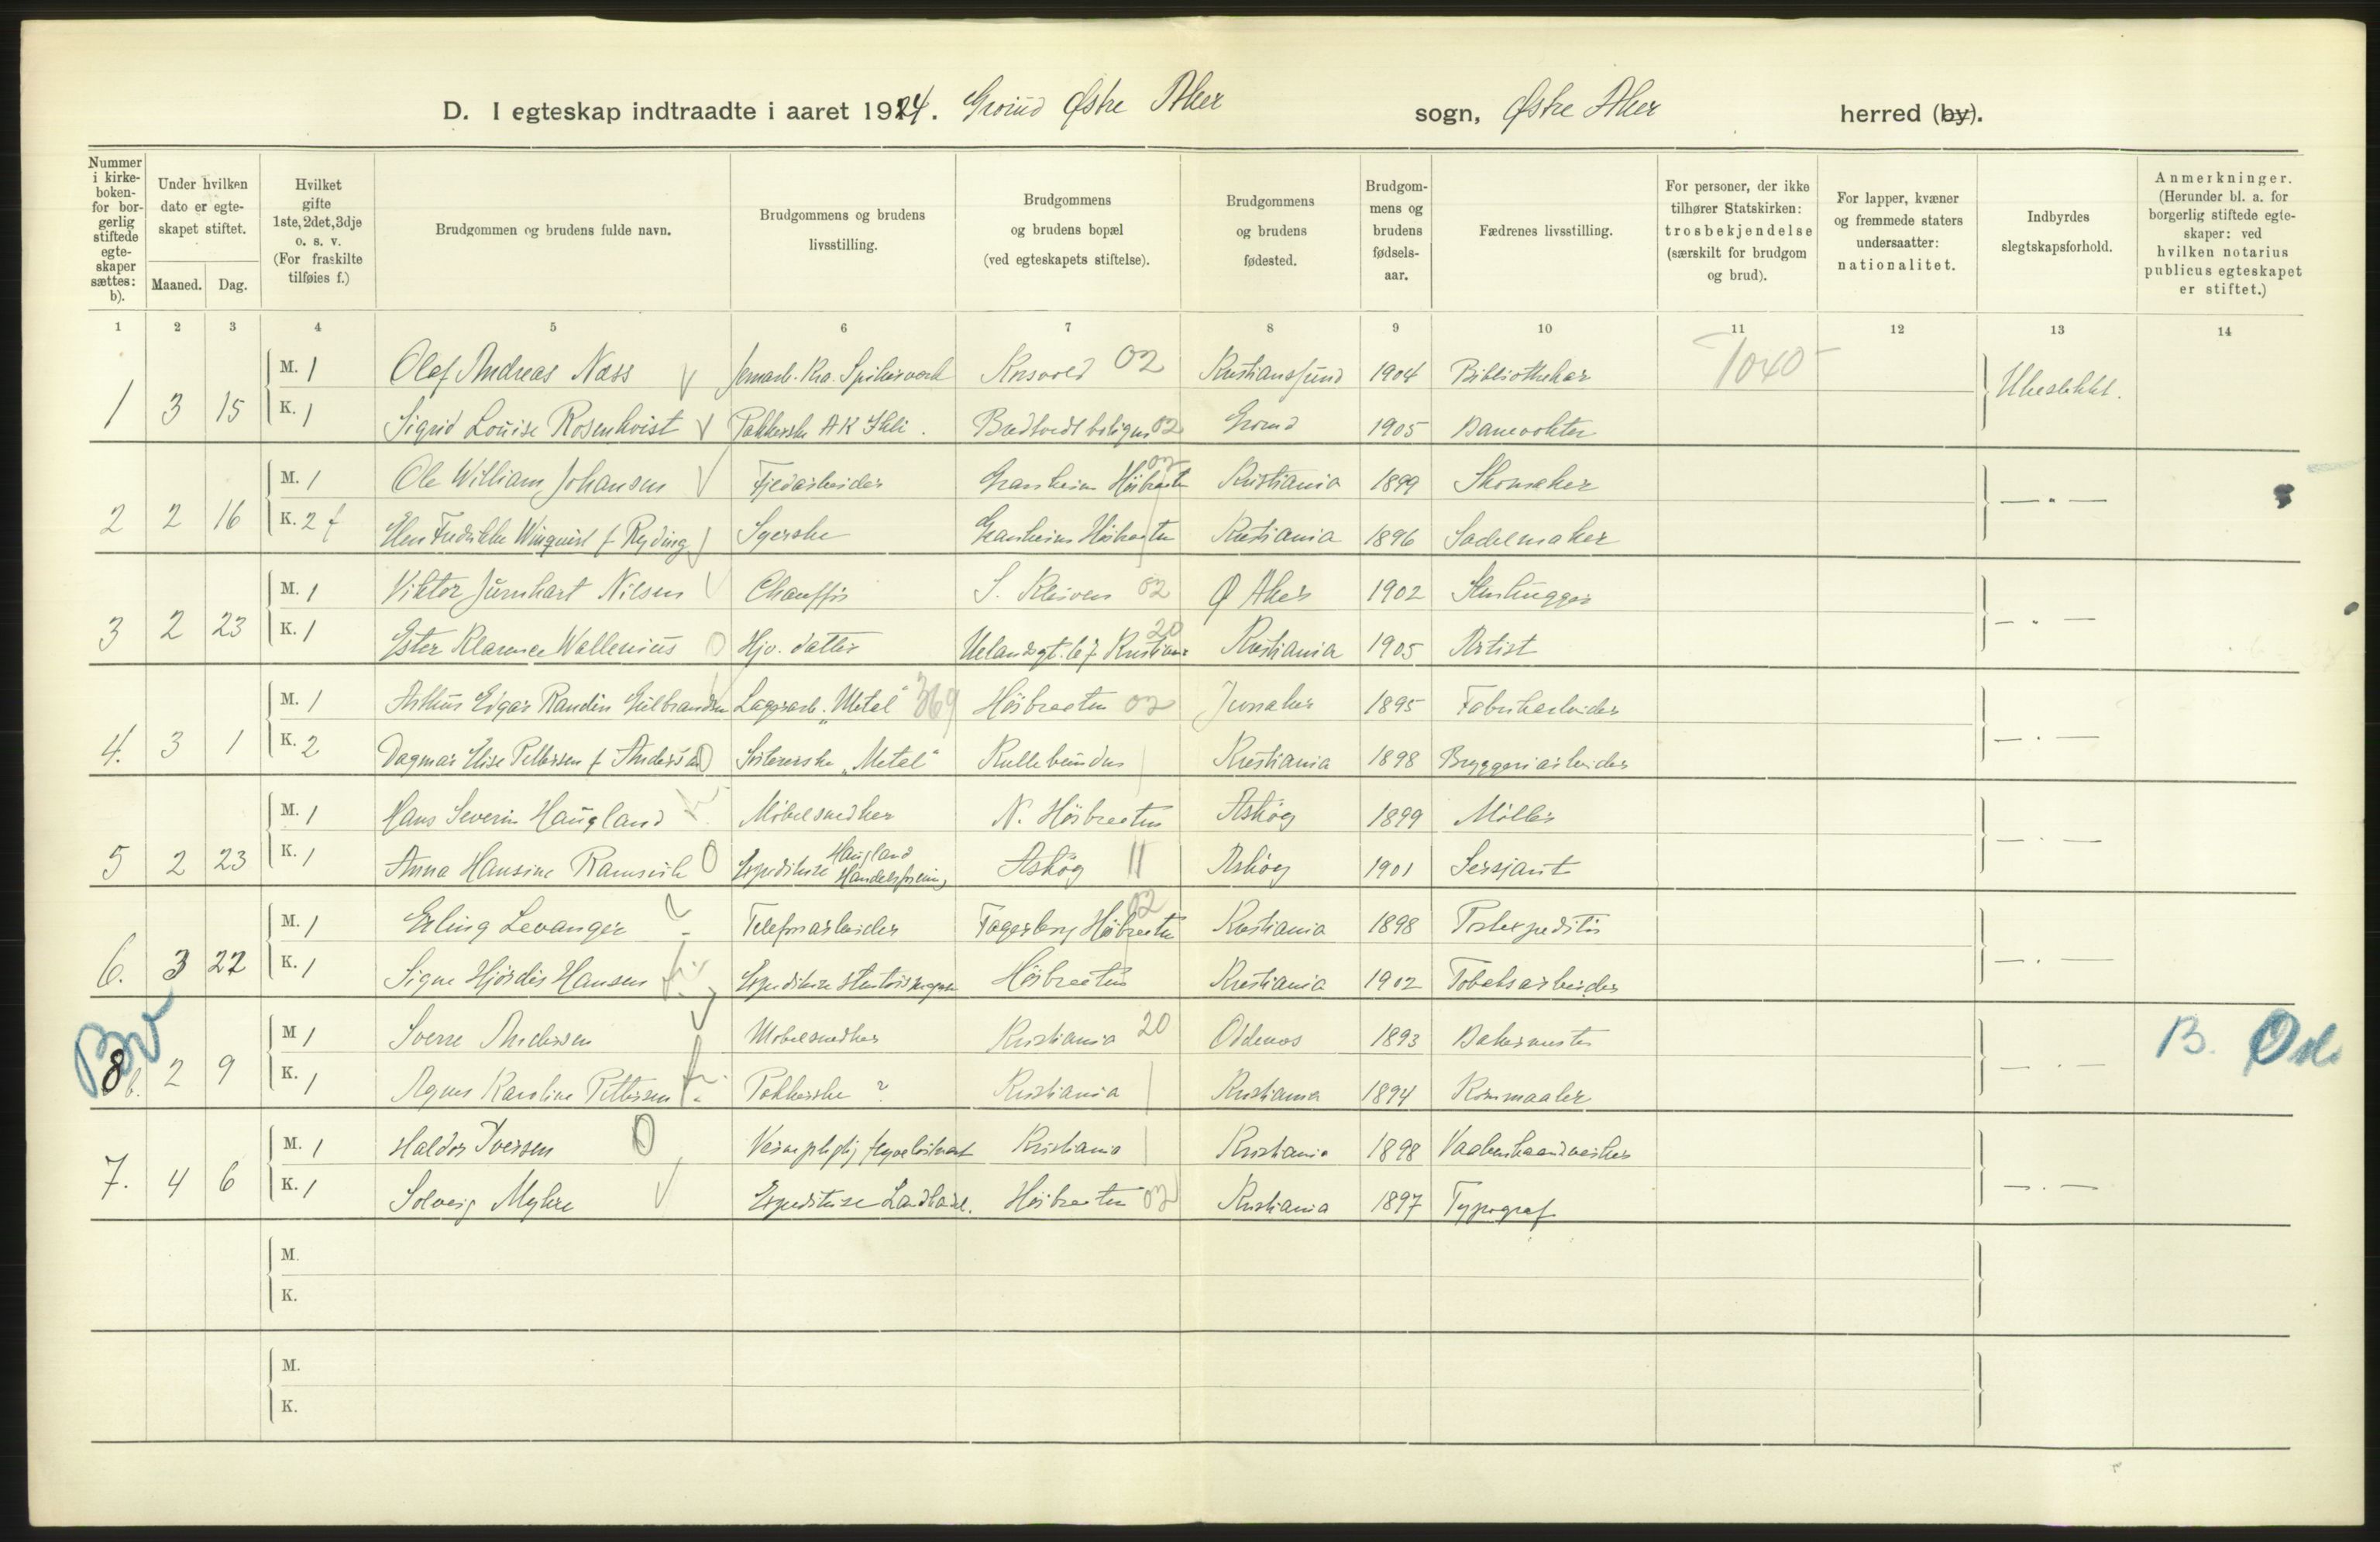 D. I egteskap indtraadte i aaret 1924. Grorud Østre Aker sogn, Østre Aker herred (by).
Nummer i kirkeboken- for borgerlig stiftede egteskaper sættes: b).
Under hvilken dato er egteskapet stiftet.
Maaned. Dag.
Hvilket gifte 1ste, 2det, 3dje o. s. v. (For fraskilte tilføies f.)
Brudgommen og brudens fulde navn.
Brudgommens og brudens livsstilling.
Brudgommens og brudens bopæl (ved egteskapets stiftelse).
Brudgommens og brudens fødested.
Brudgommens og brudens fødselsaar.
Fædrenes livsstilling.
For personer, der ikke tilhører Statskirken: trosbekjendelse (særskilt for brudgom og brud).
For lapper, kvæner og fremmede staters undersaatter: nationalitet.
Indbyrdes slegtskapsforhold.
Anmerkninger. (Herunder bl. a. for borgerlig stiftede egteskaper: ved hvilken notarius publicus egteskapet er stiftet.)
1 2 3 4 5 6 7 8 9 10 11 12 13 14
M. 1 Olaf Andreas Næss Jernarb. Kra. Spikerverk 02 Kristianssund 1904 Bibliothekar 1040
1 3 15 K. 1 Sigrid Louise Rosenkvist Pakkerske Bredtvedt 02 Grorud 1905 Banevokter Ubeslektet.
M. 1 Ole William Johansen Granheim Høibraaten 02 Kristiania 1899 Skomaker
2 2 16 K. 2 f Winquist f Ryding Syerske Granheim Høibraaten Kristiania 1896 Sadelmaker — " —
M. 1 Viktor Nilsen Chauffør 02 Ø Aker 1902 Stenhugger
3 2 23 K. 1 Ester Klarence Wallenius Hjv. datter Uelandsgt. 67 Kristiania 20 Kristiania 1905 Artist — " —
M. 1 Arthur Edgar Randin Gulbrandsen Lagerarb. "Metal" 369 Høibraaten 02 1895 Fabrikarbeider
4. 3 1 K. 2 Dagmar Elise Pettersen f Andersen "Metal" Kristiania 1898 Bryggeriarbeider — " —
M. 1 Hans Severin Haugland Møbelsnedker N. Høibraaten Askøy 1899 Møller
5 2 23 K. 1 Anna Hansine Ramsvik Expeditrise Haugland Handelsforening Askøy 11 Askøy 1901 Sersjant — " —
M. 1 Erling Levanger Telefonarbeider Fagerborg Høibraaten 02 Kristiania 1898 Postexpeditør
6. 3 22 K. 1 Signe Hjørdis Hansen Expeditrise Høibraaten Kristiania 1902 Tobaksarbeider — " —
M 1 Sverre Andersen Møbelsnedker Kristiania 20 Oddernes 1893 Bakermester
8 b. 2 9 K. 1 Agnes Karoline Pettersen Pakkerske ? Kristiania Kristiania 1894 Rommaaler — " — B. Oslo
M. 1 Haldor Iversen Kristiania Kristiania 1898 Vaabenhaandverker
7. 4 6 K. 1 Solveig Myhre Expeditrise Høibraaten 02 Kristiania 1897 Typograf — " —
M.
K.
M.
K.